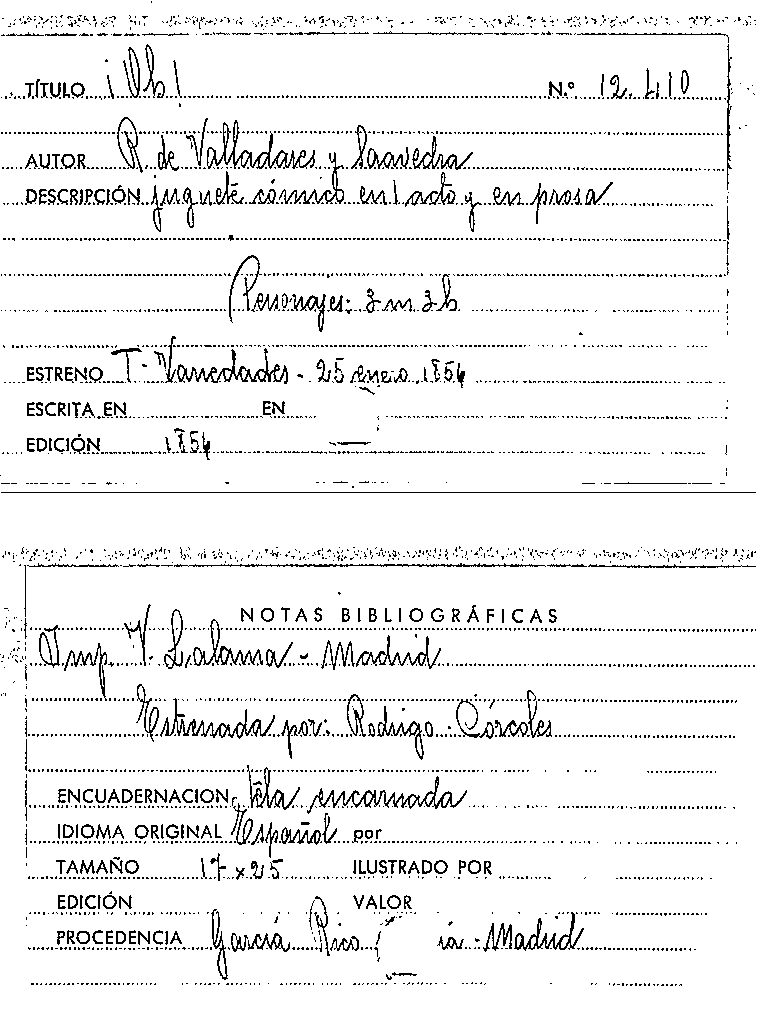 TÍTULO ¡Oh! N.º 12.410
AUTOR R. de Valladares y Saavedra
DESCRIPCIÓN juguete cómico en 1 acto y en prosa
Personajes: 3 m 3 h
ESTRENO T. Variedades - 25 enero 1854
ESCRITA EN EN
EDICIÓN 1854
NOTAS BIBLIOGRÁFICAS
Imp. V. Lalama - Madrid
Estrenada por: Rodrigo - Córcoles
ENCUADERNACION tela encarnada
IDIOMA ORIGINAL Español por
TAMAÑO 17 x 25 ILUSTRADO POR
EDICIÓN VALOR
PROCEDENCIA García Rico - Madrid